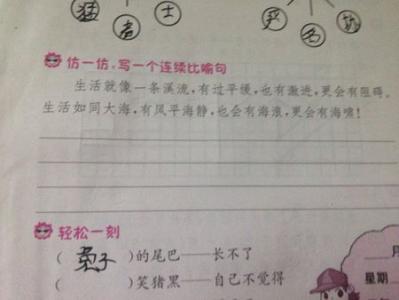 猛 者 士 名
仿一仿,写一个连续比喻句
生活就像一条溪流,有过平缓,也有激进,更会有阻碍。
生活如同大海,有风平海静,也会有海浪,更会有海啸!
轻松一刻
( 兔子 )的尾巴——长不了
月
( )笑猪黑——自己不觉得
星期